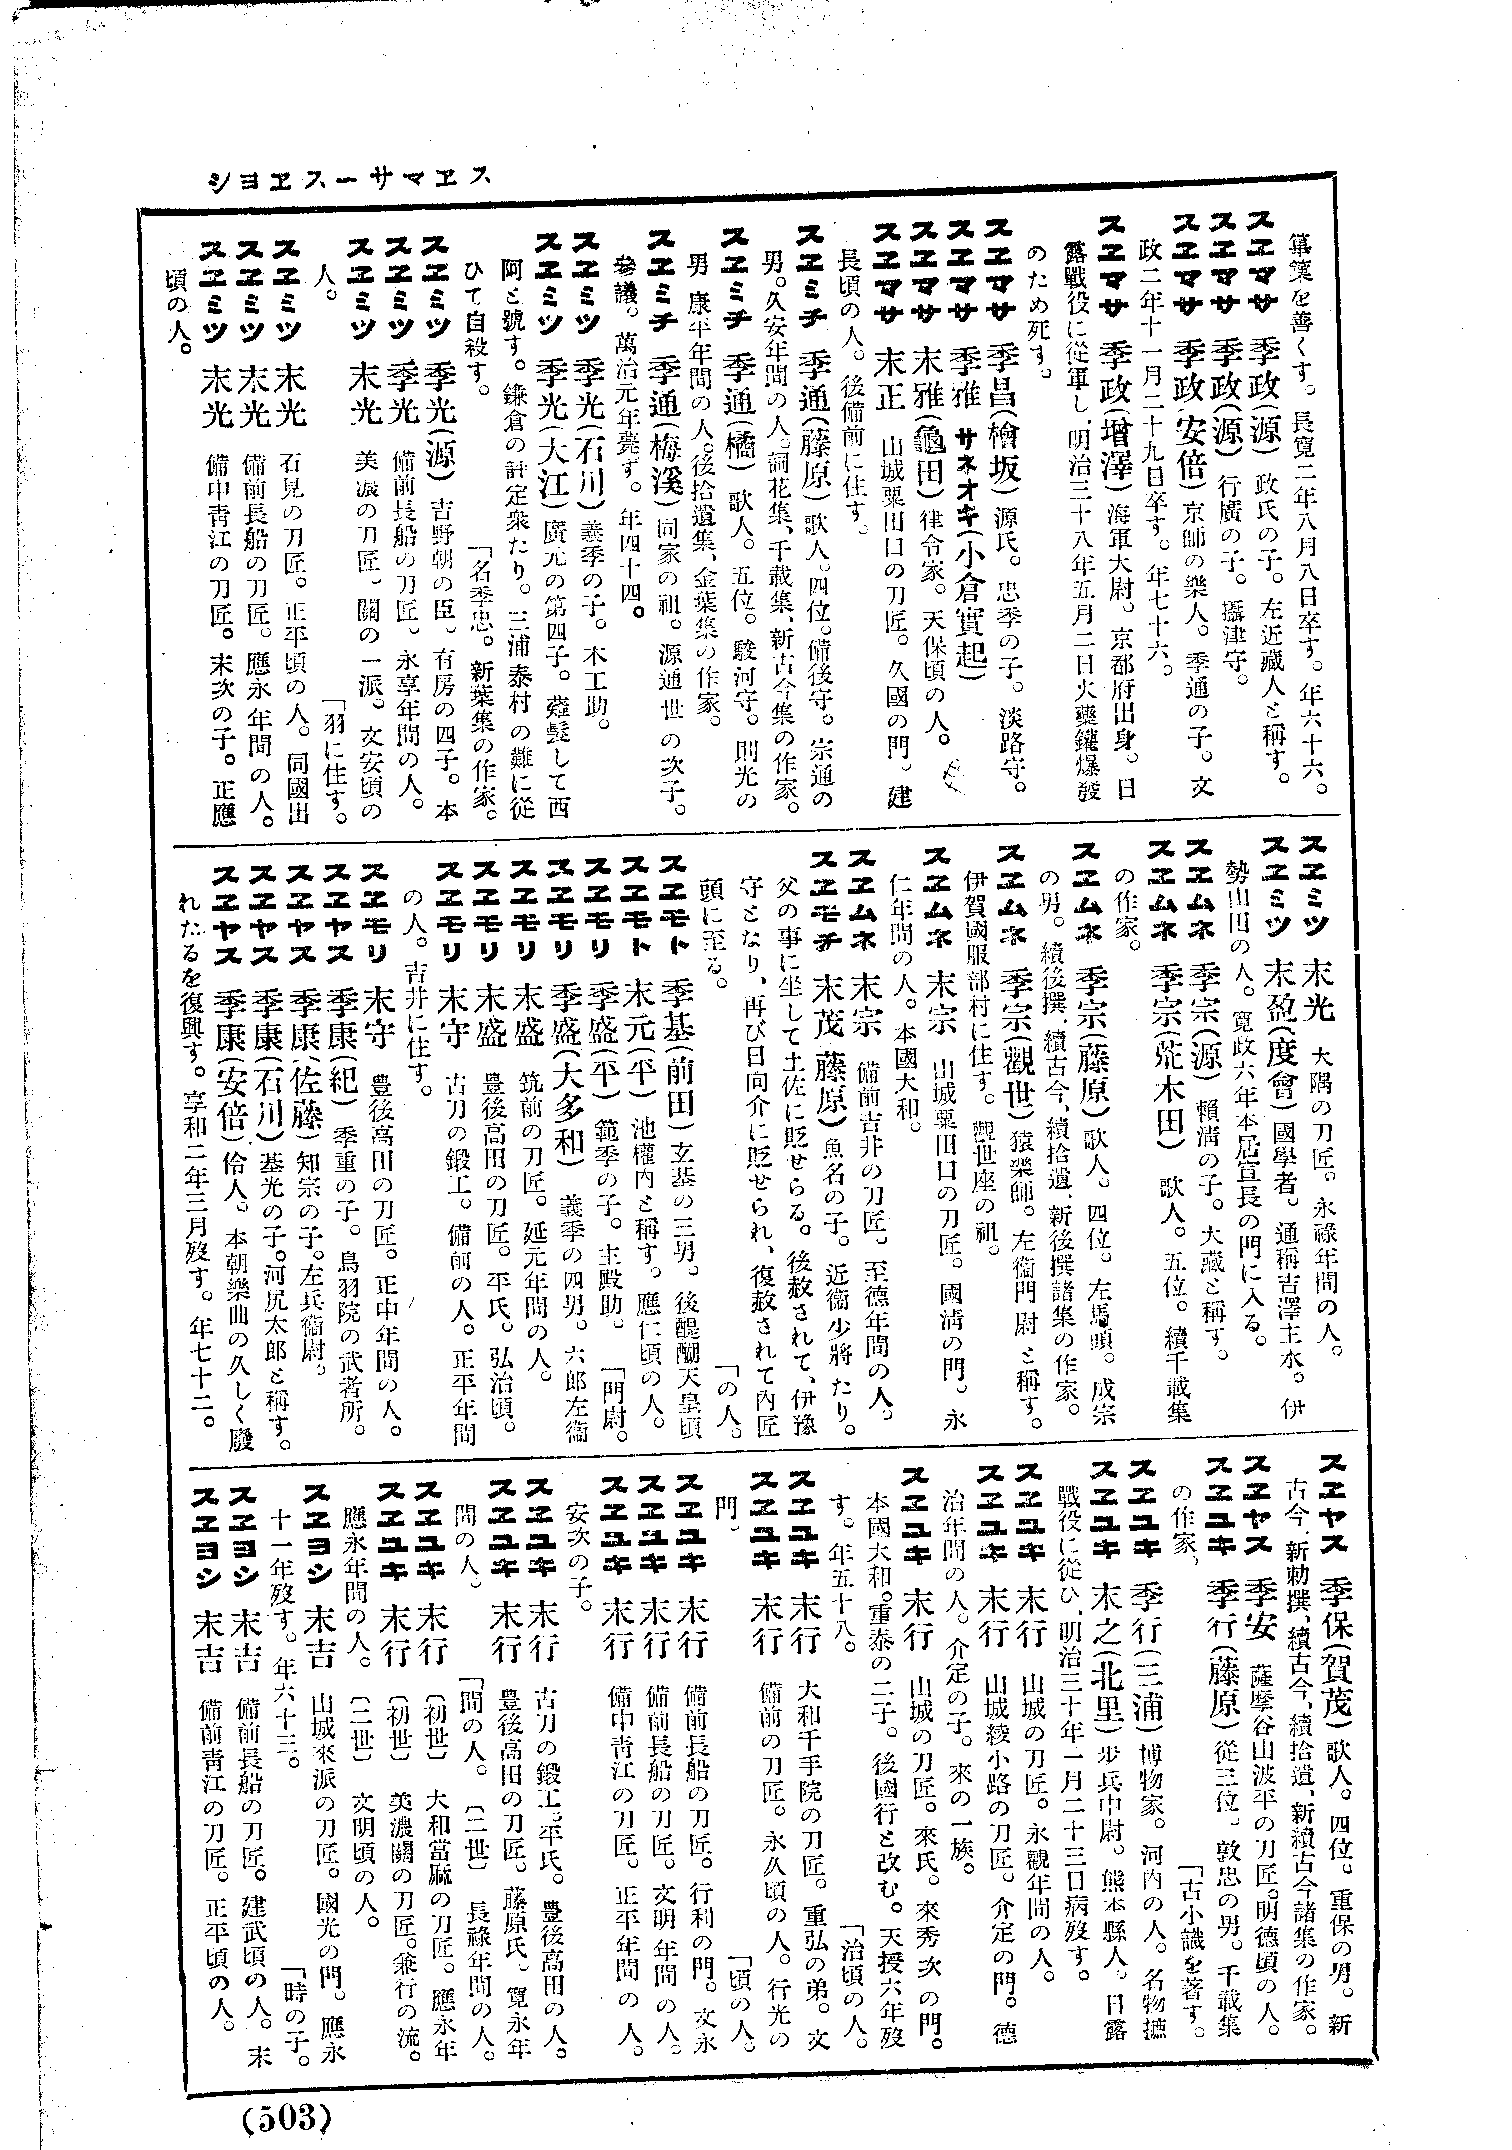 シヨヱスーサマヱス
篳篥を善くす。長寬二年八月八日卒す。年六十六。
スヱマサ 季政(源) 政氏の子。左近藏人と稱す。
スヱマサ 季政(源) 行廣の子。攝津守。
スヱマサ 季政(安倍) 京師の樂人。季通の子。文
政二年十一月二十九日卒す。年七十六。
スヱマサ 季政(增澤) 海軍大尉。京都府出身。日
露戰役に從軍し、明治三十八年五月二日火藥罐爆發
のため死す。
スヱマサ 季昌(檜坂) 源氏。忠季の子。淡路守。
スヱマサ 季雅 サネオキ(小倉實起)
スヱマサ 末雅(龜田) 律令家。天保頃の人。
スヱマサ 末正 山城粟田口の刀匠。久國の門。建
長頃の人。後備前に住す。
スヱミチ 季通(藤原) 歌人。四位。備後守。宗通の
男。久安年間の人。詞花集、千載集、新古今集の作家。
スヱミチ 季通(橘) 歌人。五位。駿河守。則光の
男 康平年間の人。後拾遺集、金葉集の作家。
スヱミチ 季通(梅溪) 同家の祖。源通世の次子。
參議。萬治元年薨ず。年四十四。
スヱミツ 季光(石川) 義季の子。木工助。
スヱミツ 季光(大江) 廣元の第四子。薙髮して西
阿と號す。鎌倉の評定衆たり。三浦泰村の難に從
ひて自殺す。 「名季忠。新葉集の作家。
スヱミツ 季光(源) 吉野朝の臣。有房の四子。本
スヱミツ 季光 備前長船の刀匠。永享年間の人。
スヱミツ 末光 美濃の刀匠。關の一派。文安頃の
人。 「羽に住す。
スヱミツ 末光 石見の刀匠。正平頃の人。同國出
スヱミツ 末光 備前長船の刀匠。應永年間の人。
スヱミツ 末光 備中靑江の刀匠。末次の子。正應
頃の人。
スヱミツ 末光 大隅の刀匠。永祿年間の人。
スヱミツ 末盈(度會) 國學者。通稱吉澤主水。伊
勢山田の人。寬政六年本居宣長の門に入る。
スヱムネ 季宗(源) 賴淸の子。大藏と稱す。
スヱムネ 季宗(荒木田) 歌人。五位。續千載集
の作家。
スヱムネ 季宗(藤原) 歌人。四位。左馬頭。成宗
の男。續後撰、續古今、續拾遺、新後撰諸集の作家。
スヱムネ 季宗(觀世) 猿樂師。左衞門尉と稱す。
伊賀國服部村に住す。觀世座の祖。
スヱムネ 末宗 山城粟田口の刀匠。國淸の門。永
仁年間の人。本國大和。
スヱムネ 末宗 備前吉井の刀匠。至德年間の人。
スヱモチ 末茂(藤原) 魚名の子。近衞少將たり。
父の事に坐して土佐に貶せらる。後赦されて、伊豫
守となり、再び日向介に貶せられ、復赦されて內匠
頭に至る。 「の人。
スヱモト 季基(前田) 玄基の三男。後醍醐天皇頃
スヱモト 末元(平) 池權內と稱す。應仁頃の人。
スヱモリ 季盛(平) 範季の子。主殿助。 「門尉。
スヱモリ 季盛(大多和) 義季の四男。六郎左衞
スヱモリ 末盛 筑前の刀匠。延元年間の人。
スヱモリ 末盛 豊後高田の刀匠。平氏。弘治頃。
スヱモリ 末守 古刀の鍛工。備前の人。正平年間
の人。吉井に住す。
スヱモリ 末守 豊後高田の刀匠。正中年間の人。
スヱヤス 季康(紀) 季重の子。鳥羽院の武者所。
スヱヤス 季康(佐藤) 知宗の子。左兵衞尉。
スヱヤス 季康(石川) 基光の子。河尻太郎と稱す。
スヱヤス 季康(安倍) 伶人。本朝樂曲の久しく廢
れたるを復興す。享和二年三月歿す。年七十二。
スヱヤス 季保(賀茂) 歌人。四位。重保の男。新
古今、新勅撰、續古今、續拾遺、新續古今諸集の作家。
スヱヤス 季安 薩摩谷山波平の刀匠。明德頃の人。
スヱユキ 季行(藤原) 從三位。敦忠の男。千載集
の作家。 「古小識を著す。
スヱユキ 季行(三浦) 博物家。河內の人。名物摭
スヱユキ 末之(北里) 步兵中尉。熊本縣人。日露
戰役に從ひ、明治三十年一月二十三日病歿す。
スヱユキ 末行 山城の刀匠。永觀年間の人。
スヱユキ 末行 山城綾小路の刀匠。介定の門。德
治年間の人。介定の子。來の一族。
スヱユキ 末行 山城の刀匠。來氏。來秀次の門。
本國大和。重泰の二子。後國行と改む。天授六年歿
す。年五十八。 「治頃の人。
スヱユキ 末行 大和千手院の刀匠。重弘の弟。文
スヱユキ 末行 備前の刀匠。永久頃の人。行光の
門。 「頃の人。
スヱユキ 末行 備前長船の刀匠。行利の門。文永
スヱユキ 末行 備前長船の刀匠。文明年間の人。
スヱユキ 末行 備中靑江の刀匠。正平年間の人。
安次の子。
スヱユキ 末行 古刀の鍛工。平氏。豊後高田の人。
スヱユキ 末行 豊後高田の刀匠。藤原氏。寬永年
間の人。 「間の人。(二世) 長祿年間の人。
スヱユキ 末行 (初世) 大和當麻の刀匠。應永年
スヱユキ 末行 (初世) 美濃關の刀匠。兼行の流。
應永年間の人。 (二世) 文明頃の人。
スヱヨシ 末吉 山城來派の刀匠。國光の門。應永
十一年歿す。年六十三。 「時の子。
スヱヨシ 末吉 備前長船の刀匠。建武頃の人。末
スヱヨシ 末吉 備前靑江の刀匠。正平頃の人。
(503)